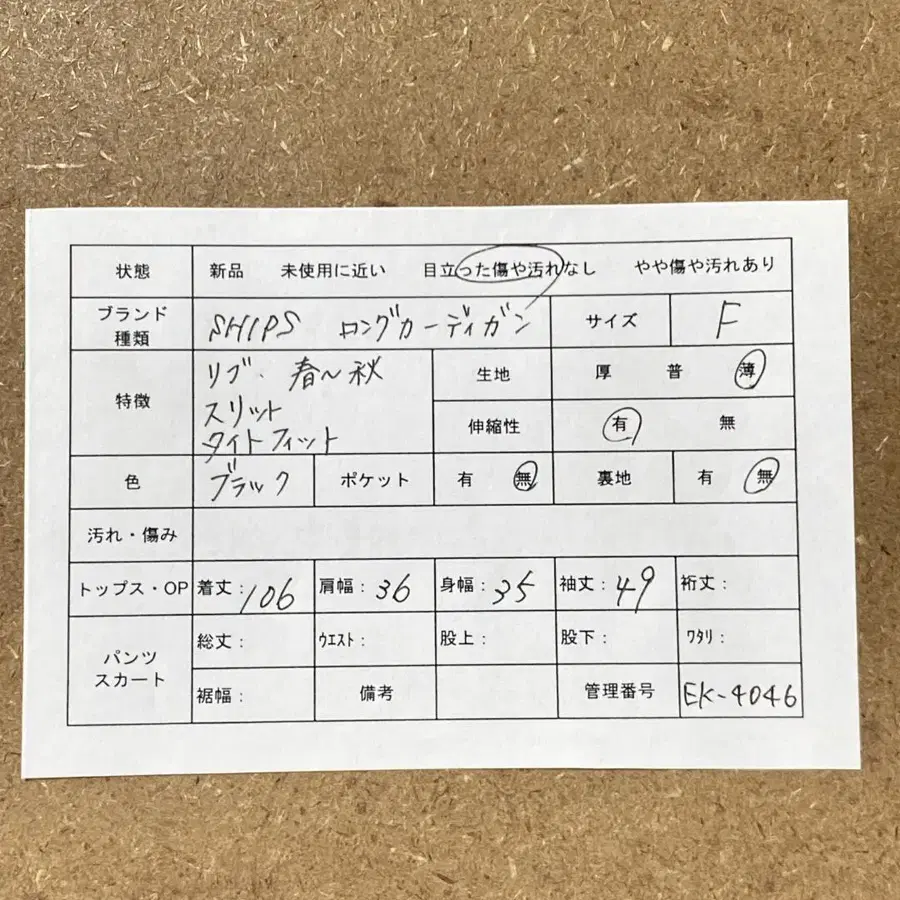 状態 新品 未使用に近い 目立った傷や汚れなし やや傷や汚れあり
ブランド 種類 SHIPS ロングカーディガン サイズ F
特徴 リブ、春～秋 生地 厚 普 薄
スリット 伸縮性 有 無
タイトフィット
色 ブラック ポケット 有 無 裏地 有 無
汚れ・傷み
トップス・OP 着丈:106 肩幅:36 身幅:35 袖丈:49 裄丈:
パンツ スカート 総丈: ウエスト: 股上: 股下: ワタリ:
裾幅: 備考 管理番号 EK-4046